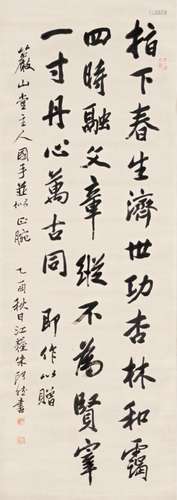 指下春生濟世功杏林和靄
四時融文章縱不為賢宰
一寸丹心萬古同 即作以贈
巖山堂主人國手並似正腕
乙酉秋日江蘿朱
書